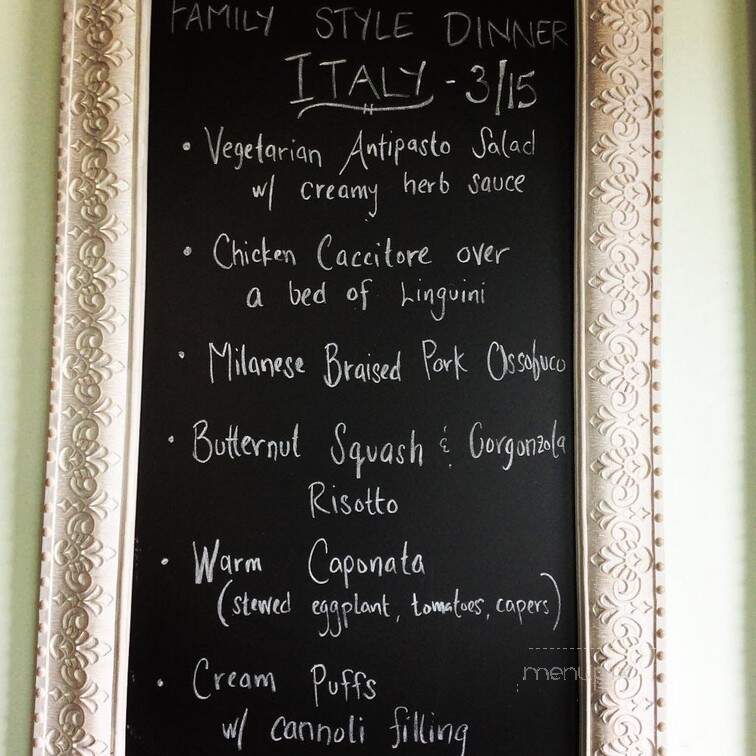 FAMILY STYLE DINNER
ITALY - 3/15
• Vegetarian Antipasto Salad
w/ creamy herb sauce
• Chicken Caccitore over
a bed of Linguini
• Milanese Braised Pork Ossobuco
• Butternut Squash & Gorgonzola
Risotto
• Warm Caponata
(stewed eggplant, tomatoes, capers)
• Cream Puffs
w/ cannoli filling